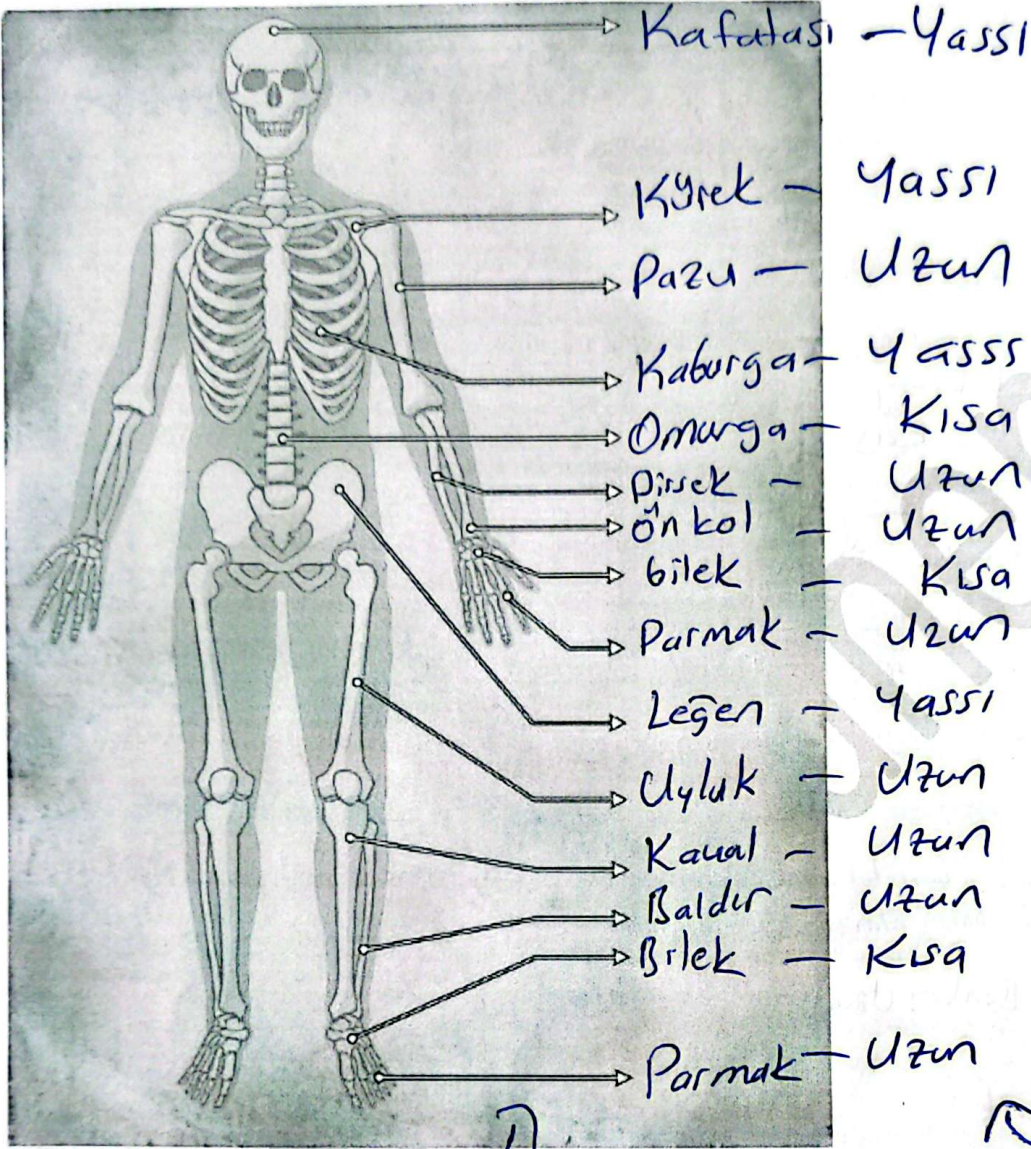 Kafatası - Yassı
Kürek - Yassı
Pazu - Uzun
Kaburga - Yassı
Omurga - Kısa
Dirsek - Uzun
Ön kol - Uzun
bilek - Kısa
Parmak - Uzun
Leğen - Yassı
Uyluk - Uzun
Kaval - Uzun
Baldır - Uzun
Bilek - Kısa
Parmak - Uzun